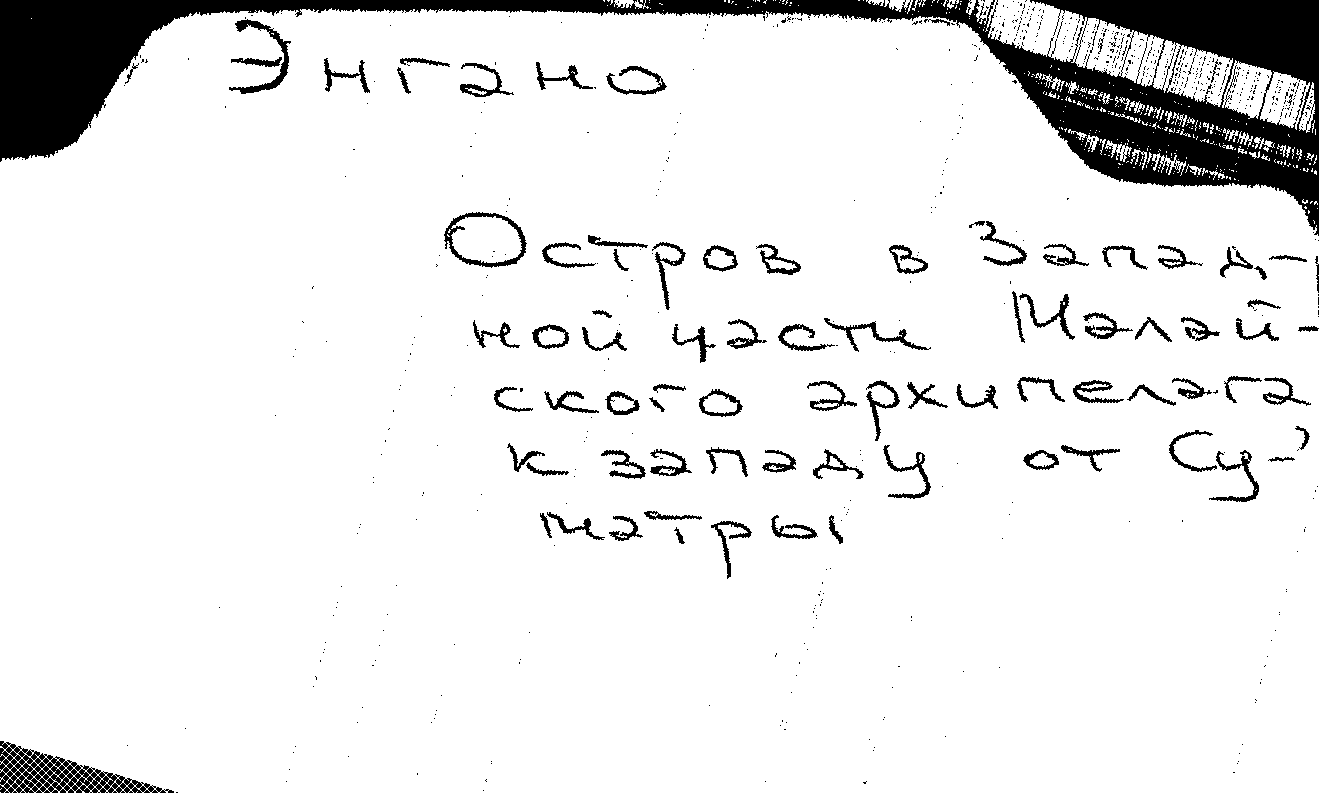 Энгано
Остров в Запад-
ной части Малай-
ского архипелага
к западу от Су-
матры